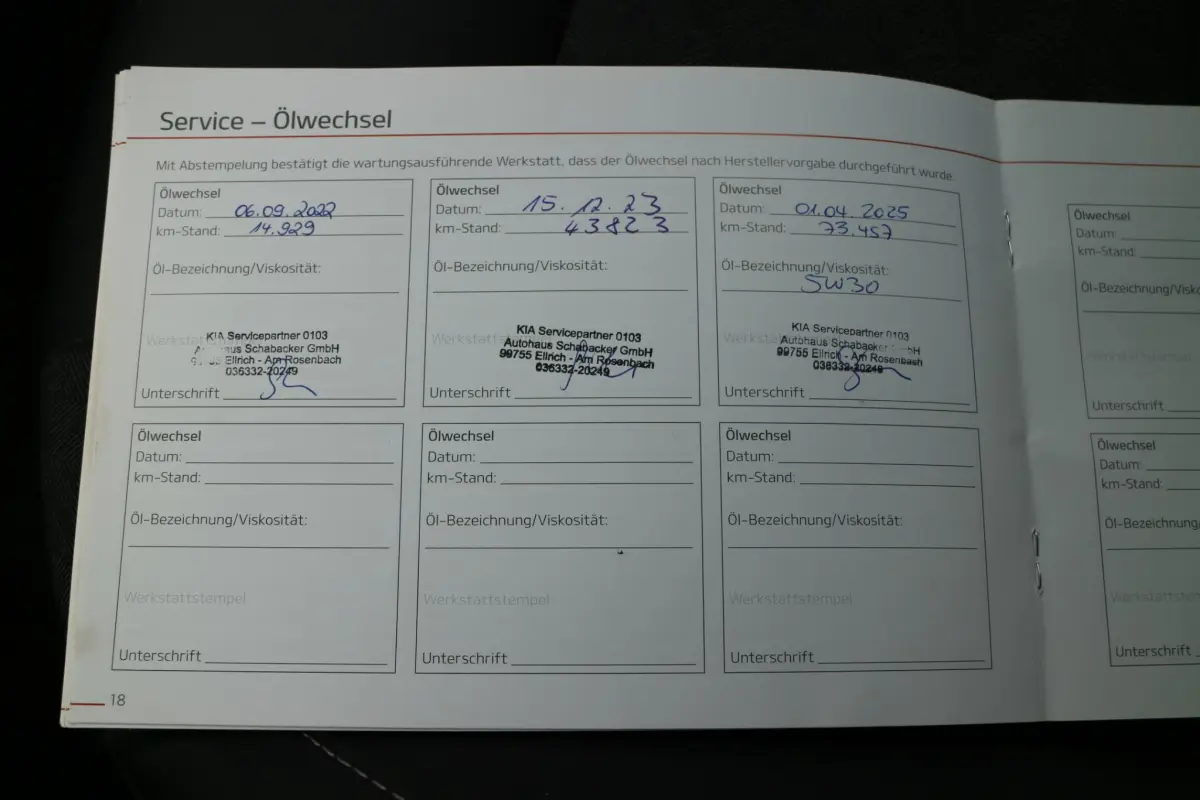 Service – Ölwechsel
Mit Abstempelung bestätigt die wartungsausführende Werkstatt, dass der Ölwechsel nach Herstellervorgabe durchgeführt wurde.
Ölwechsel
Datum: 06.09.2022
km-Stand: 14.929
Öl-Bezeichnung/Viskosität:
KIA Servicepartner 0103
Schabacker GmbH
Ellrich - Am Rosenbach
036332-20249
Unterschrift
Ölwechsel
Datum: 15.12.23
km-Stand: 43823
Öl-Bezeichnung/Viskosität:
KIA Servicepartner 0103
Autohaus Schabacker GmbH
99755 Ellrich - Am Rosenbach
036332-20249
Unterschrift
Ölwechsel
Datum: 01.04.2025
km-Stand: 73.457
Öl-Bezeichnung/Viskosität:
5W30
KIA Servicepartner 0103
Autohaus Schabacker
99755 Ellrich - Am Rosenbach
036332-20249
Unterschrift
Ölwechsel
Datum:
km-Stand:
Öl-Bezeichnung/Viskosität:
Werkstattstempel
Unterschrift
Ölwechsel
Datum:
km-Stand:
Öl-Bezeichnung/Viskosität:
Werkstattstempel
Unterschrift
Ölwechsel
Datum:
km-Stand:
Öl-Bezeichnung/Viskosität:
Werkstattstempel
Unterschrift
18
Ölwechsel
Datum:
km-Stand:
Öl-Bezeichnung/Visko
Unterschrift
Ölwechsel
Datum:
km-Stand:
Öl-Bezeichnung/
Unterschrift